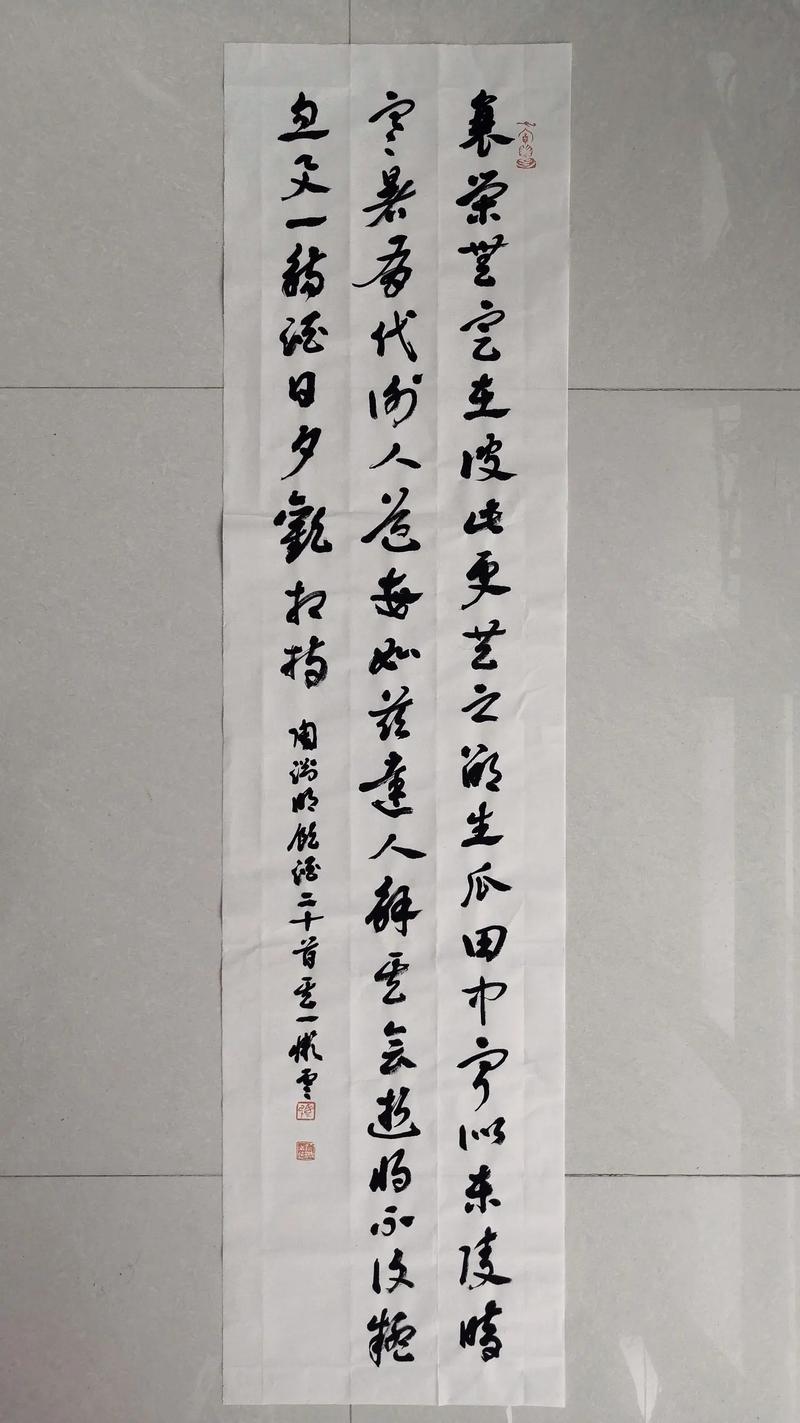 衰榮無定在彼此更共之邵生瓜田中寧似東陵時
寒暑有代謝人道每如茲達人解其會逝將不復疑
忽與一觴酒日夕歡相持
陶淵明飲酒二十首其一 雲